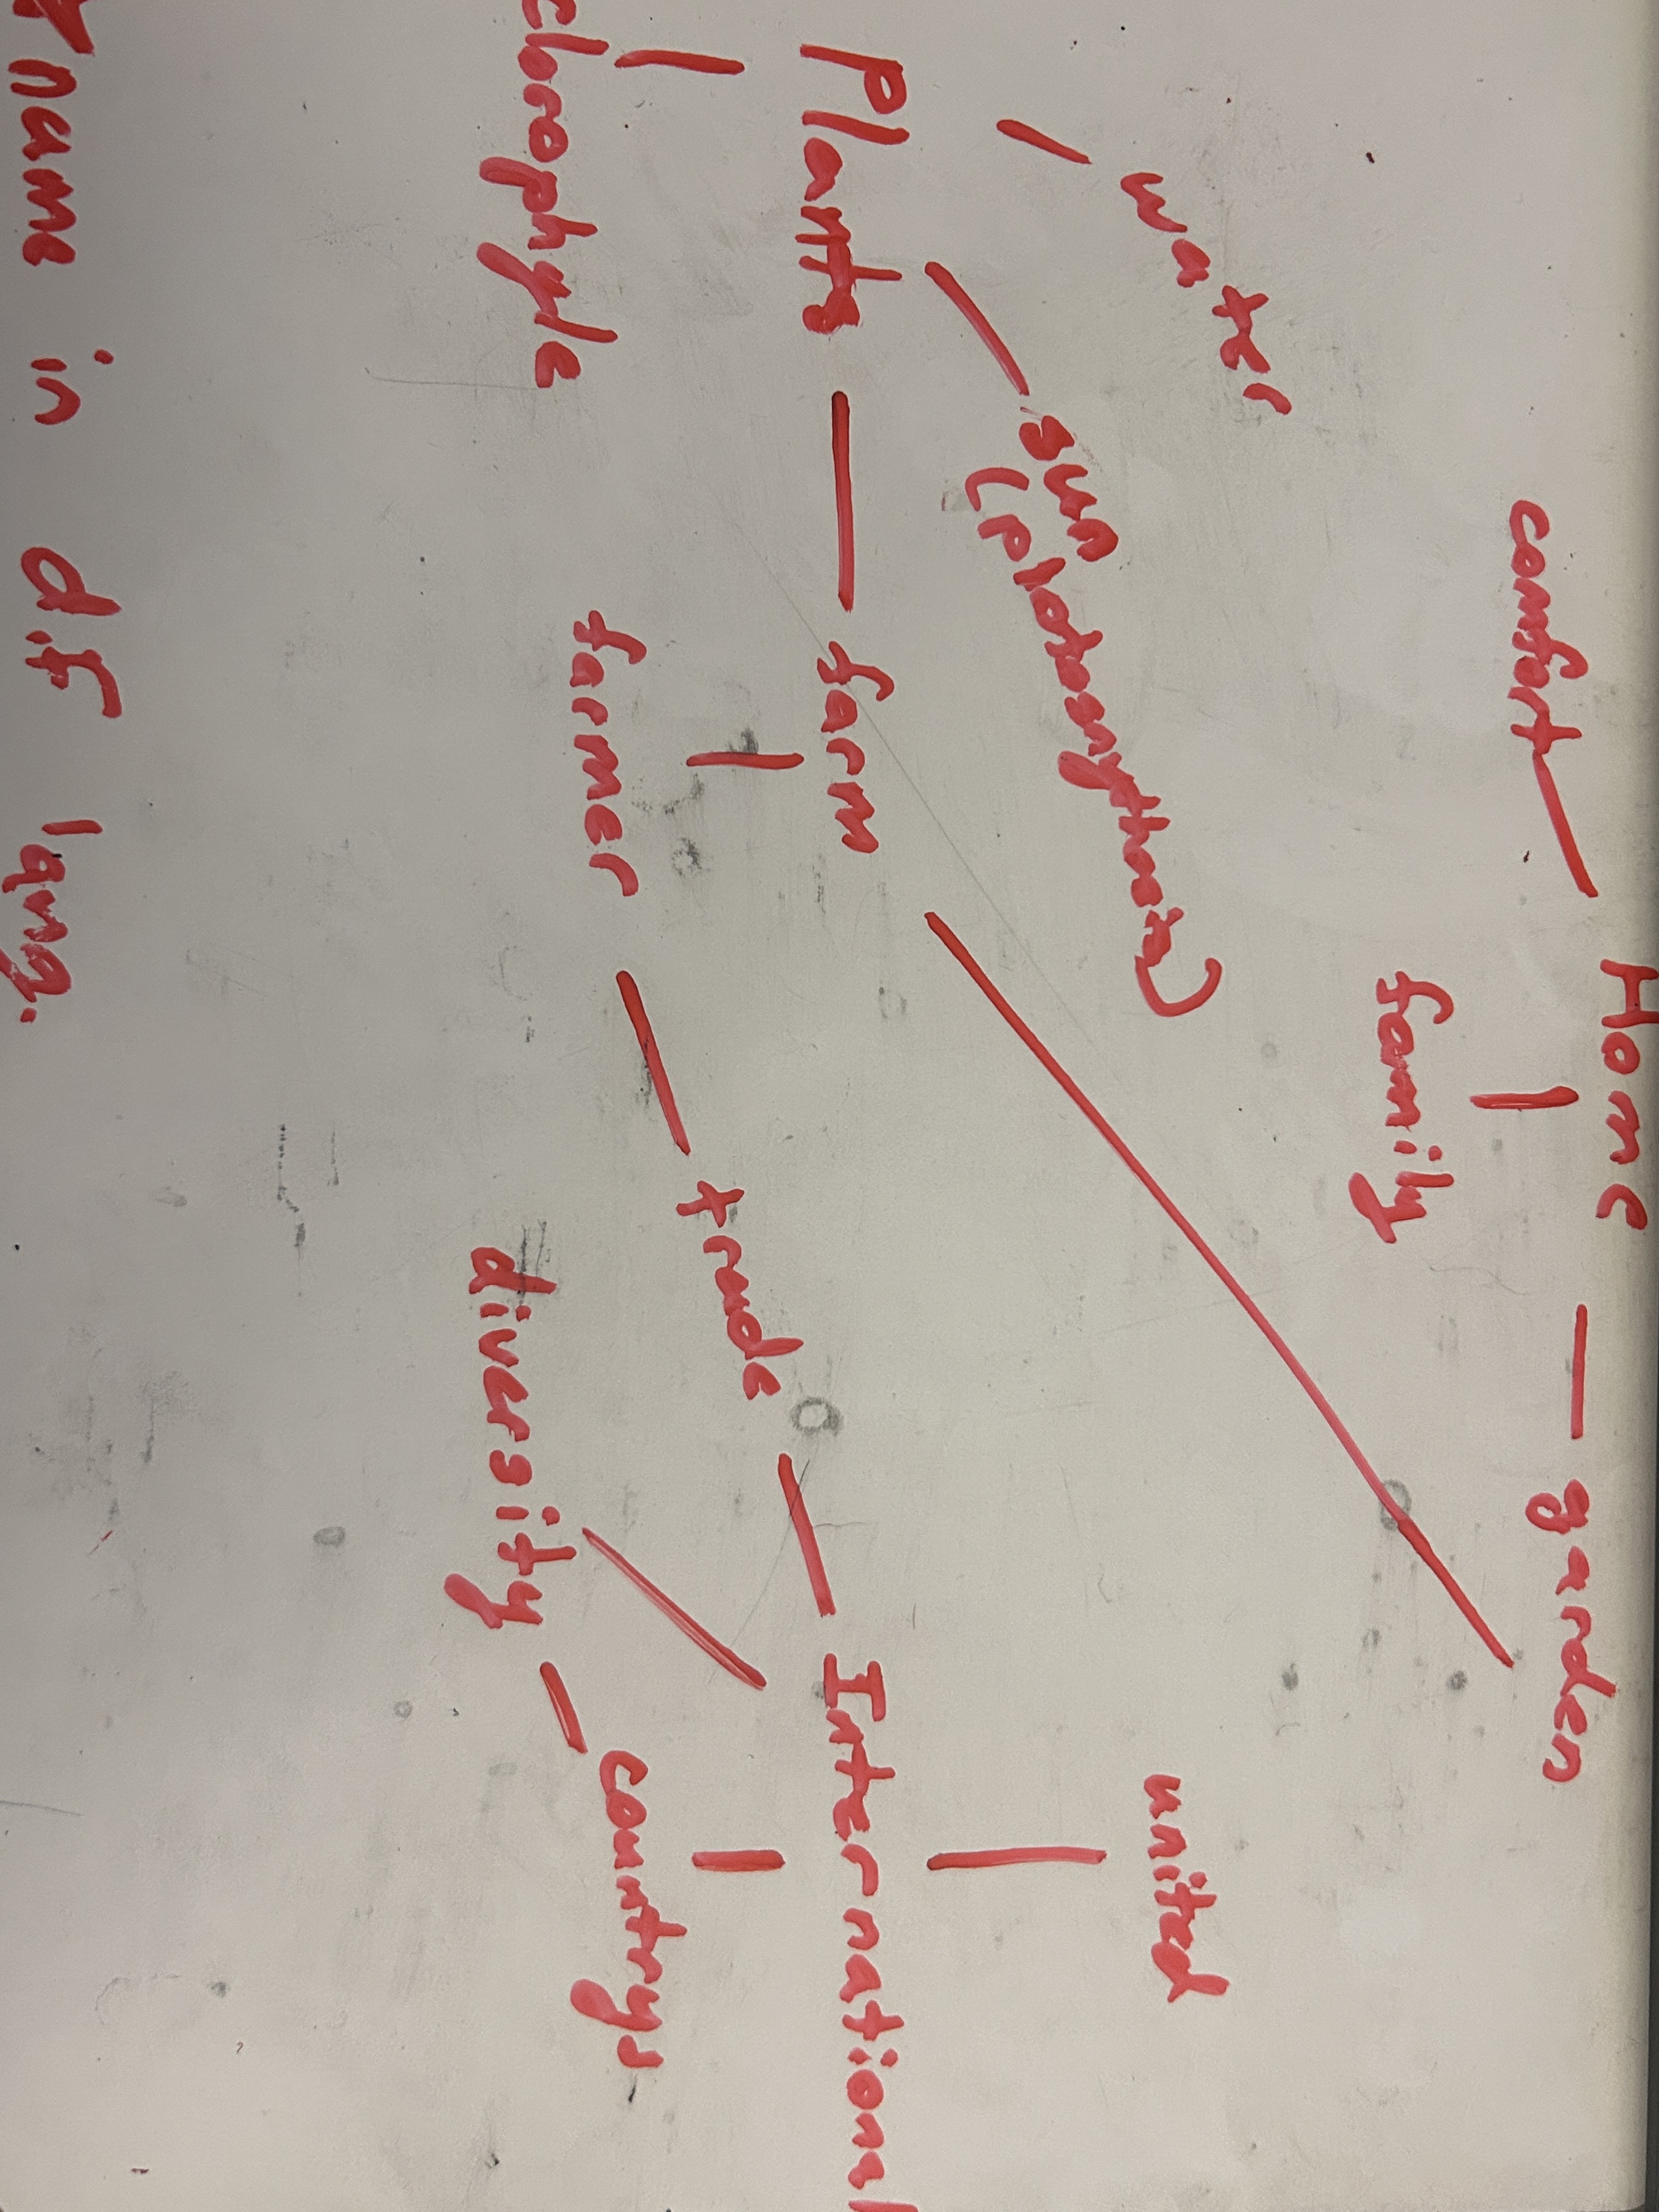 Home
comfort
garden
family
water
sun
(photosnythesis)
united
Plants
farm
International
trade
clorophyle
farmer
countrys
diversity
name in dif lang.